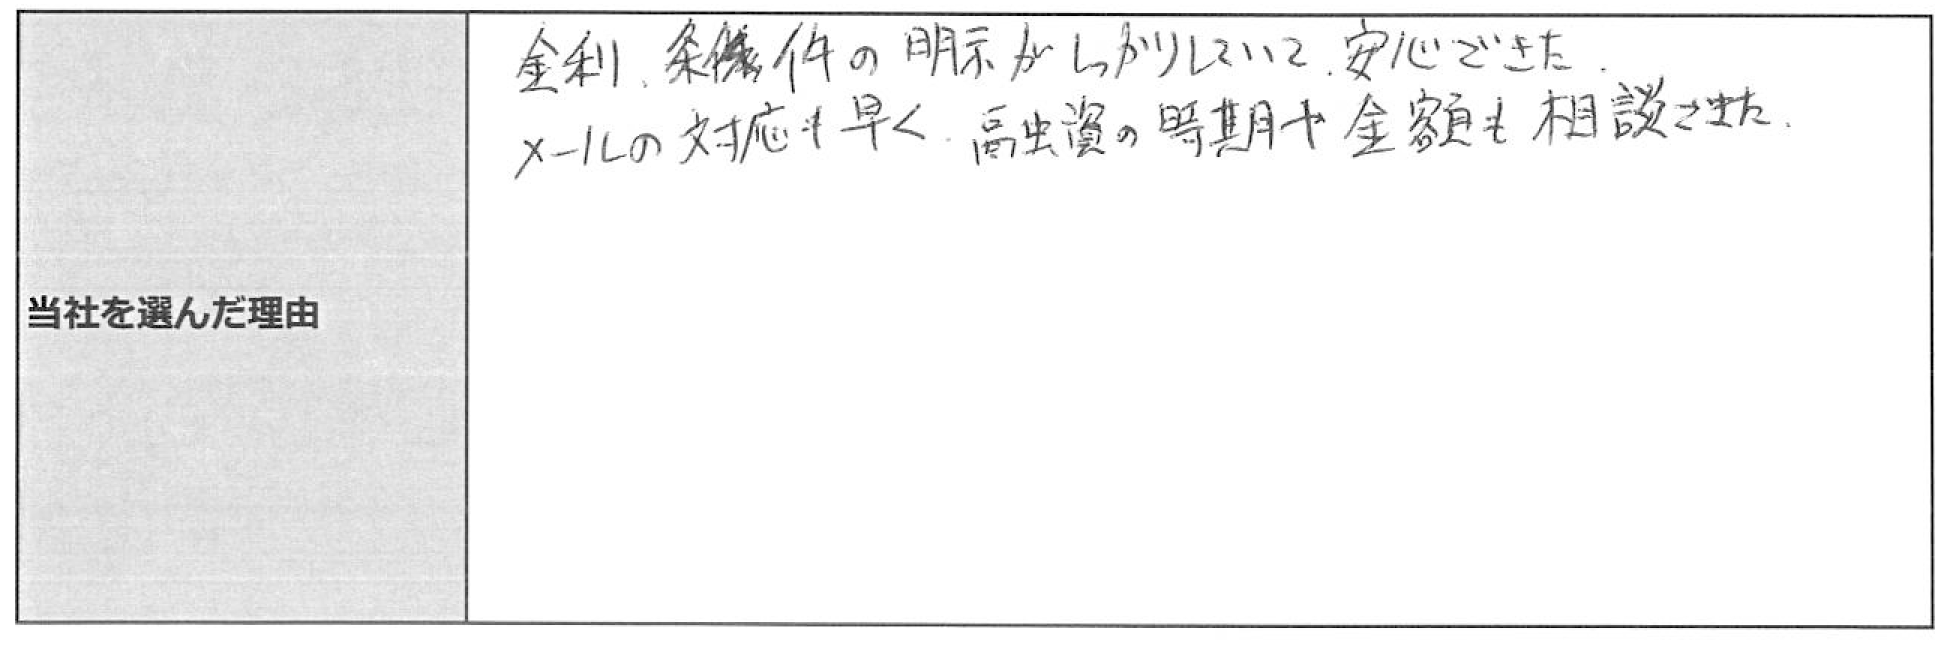 金利、条件の明示がしっかりしていて、安心できた。
メールの対応も早く、融資の時期や金額も相談できた。
当社を選んだ理由